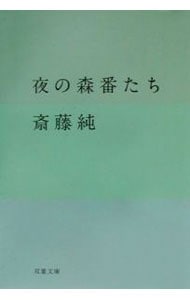 夜の森番たち
斎藤純
双葉文庫